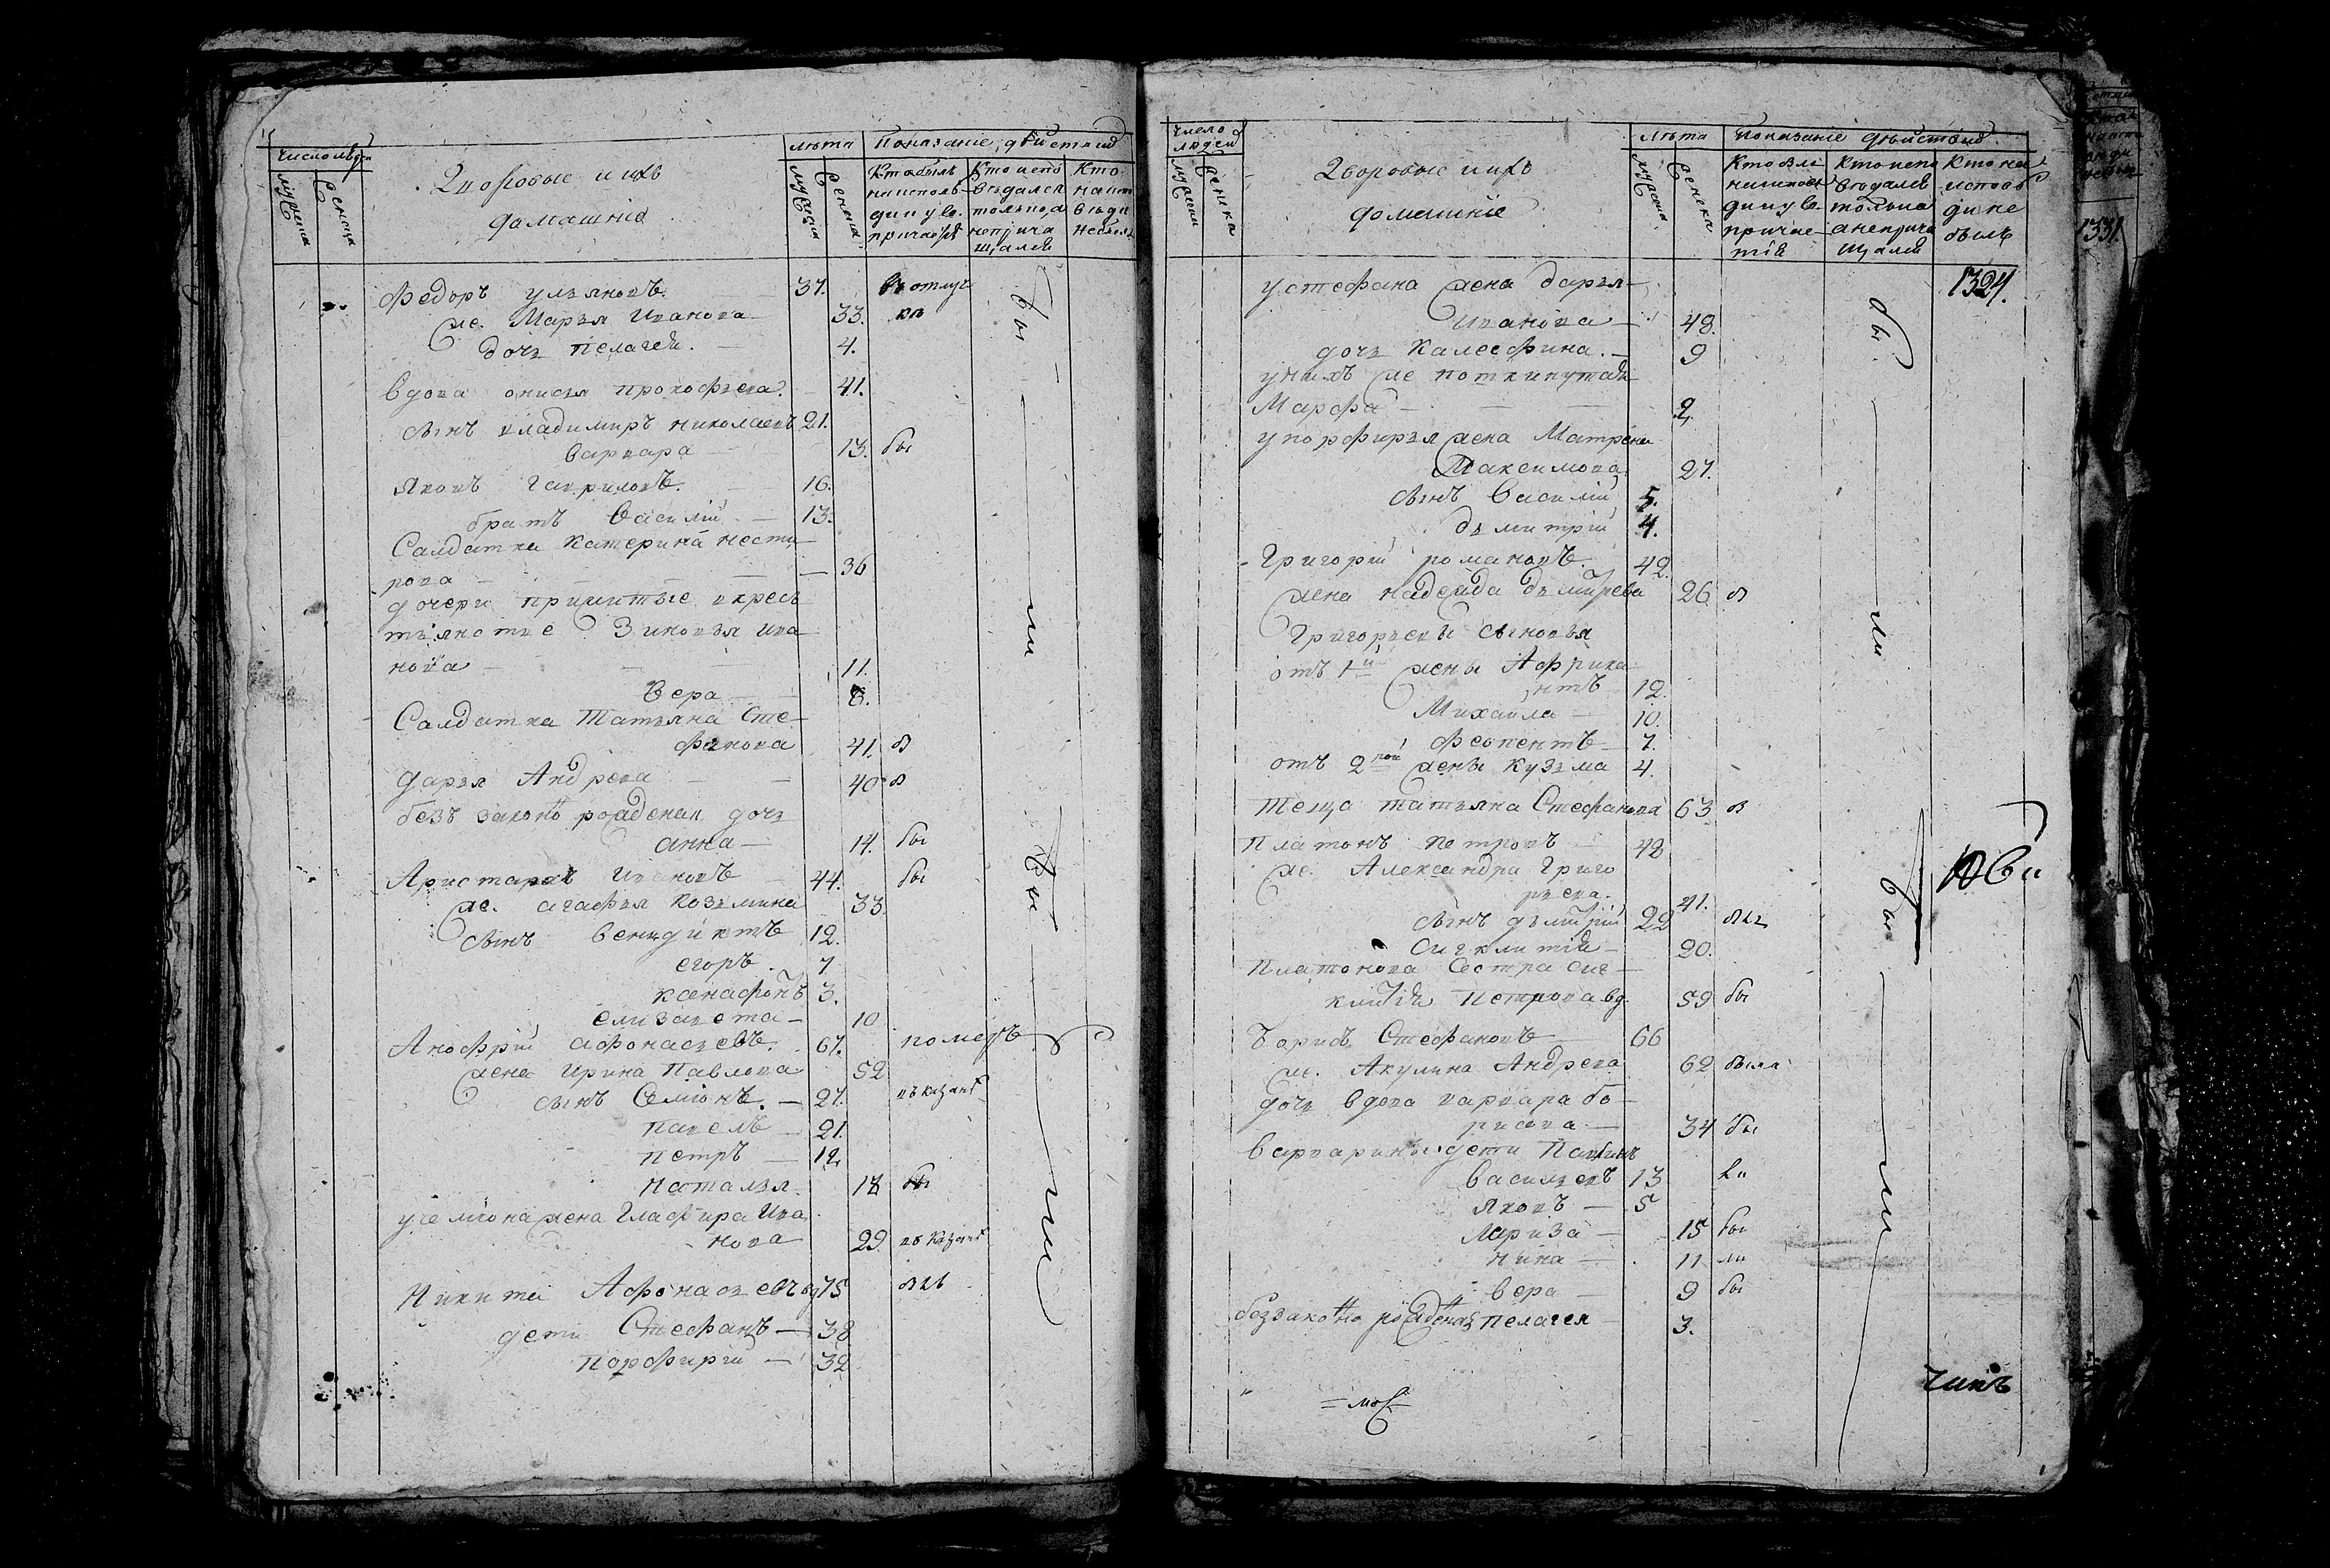 Число людей
мужеска
женска
Дворовые и ихъ
домашніе
лѣта
мужеска
женска
Показаніе дѣйствій
Кто былъ на исповѣди и у св. причастія
Кто исповѣдался только, а не причащался
Кто на исповѣди не былъ
Федоръ ульяновъ 37. въ отлуч
ж. Марья Иванова 33. кѣ
дочь пелагея 4.
вдова анисья прокофьева 41.
сынъ владимиръ николаевъ 21.
варвара 13. бы
яковъ гавриловъ. 16.
братъ василій 13.
Салдатка катерина несте
рова 36
дочери принятые в крес
тьянстве Зиновья ива
нова 11.
вера 8.
Салдатка татьяна Сте
фанова 41. в
дарья Андрева 40 в
безъ законо рожденая дочь
анна 14. бы
Аристархъ Ивановъ 44. бы
ж. агафья козьмина 33.
сынъ венидиктъ 12.
егоръ 7
ксенафонъ 3.
елизавета 10
Анофрій афонасьевъ. 67. померъ
жена ирина Павлова 52
сынъ Семіонъ. 27. въ казанѣ
павелъ 21.
петръ 12
наталья 18 бы
у семіона жена глафира Ива
нова 29. въ казанѣ
Никита Афонасьевъ вд 75 въ
дети Стефанъ 38
порфирій 32
бы ли
бы ли
Число людей
мужеска
женска
Дворовые и ихъ
домашніе
лѣта
мужеска
женска
Показаніе дѣйствій
Кто былъ на исповѣди и у св. причастія
Кто исповѣдался только а не причащался
Кто на исповѣди не былъ
1324.
у стефана жена дарья
иванова 48.
дочь калесфина. 9
у нихъ же поткинутая
Марфа 2
у порфирья жена Матрена
Максимова 27.
сынъ василій 5.
дьмитрій 4.
Григорій романовъ 42.
жена надежда дьмитрева 26 в
Григорьевы сыновья
отъ 1й жены Африка
нтъ 12.
Михайла 10.
феопентъ 7.
отъ 2пой жены кузьма 4.
теща татьяна Стефанова 63 в
платонъ петровъ 42
ж. Александра Григо
рьева. 41.
сынъ дьмитрій 22
сигклитія 20.
платонова сестра сиг
клитія петрова вд. 59 бы
борисъ Стефановъ 66
ж. Акулина Андрева 62 была
дочь вдова варвара бо
рисова 34 бы
варварины дети
васильевъ 13
яковъ 5
лариза 15 бы
нина 11 ли
вера 9 бы
беззаконо рожденая пелагея 3.
бы ли
бы ли
1331.